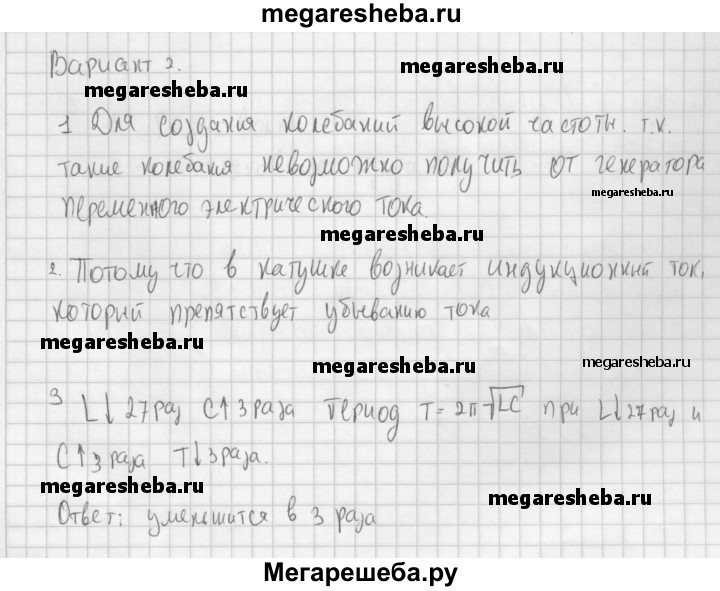 megaresheba.ru
Вариант 2.
megaresheba.ru
megaresheba.ru
1 Для создания колебаний высокой частоты. т.к.
такие колебания невозможно получить от генератора
megaresheba.ru
переменного электрического тока.
megaresheba.ru
2. Потому что в катушке возникает индукционный ток,
который препятствует убыванию тока
megaresheba.ru
megaresheba.ru
3 L↓ 27 раз C↑ 3 раза период T = 2π√LC при L↓ 27 раз и
C↑ 3 раза T↓ 3 раза.
megaresheba.ru
megaresheba.ru
Ответ: уменьшится в 3 раза
Мегарешеба.ру